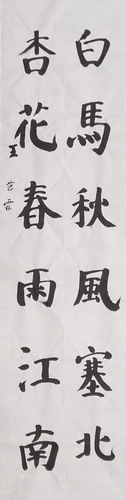 白馬秋風塞北
杏花春雨江南